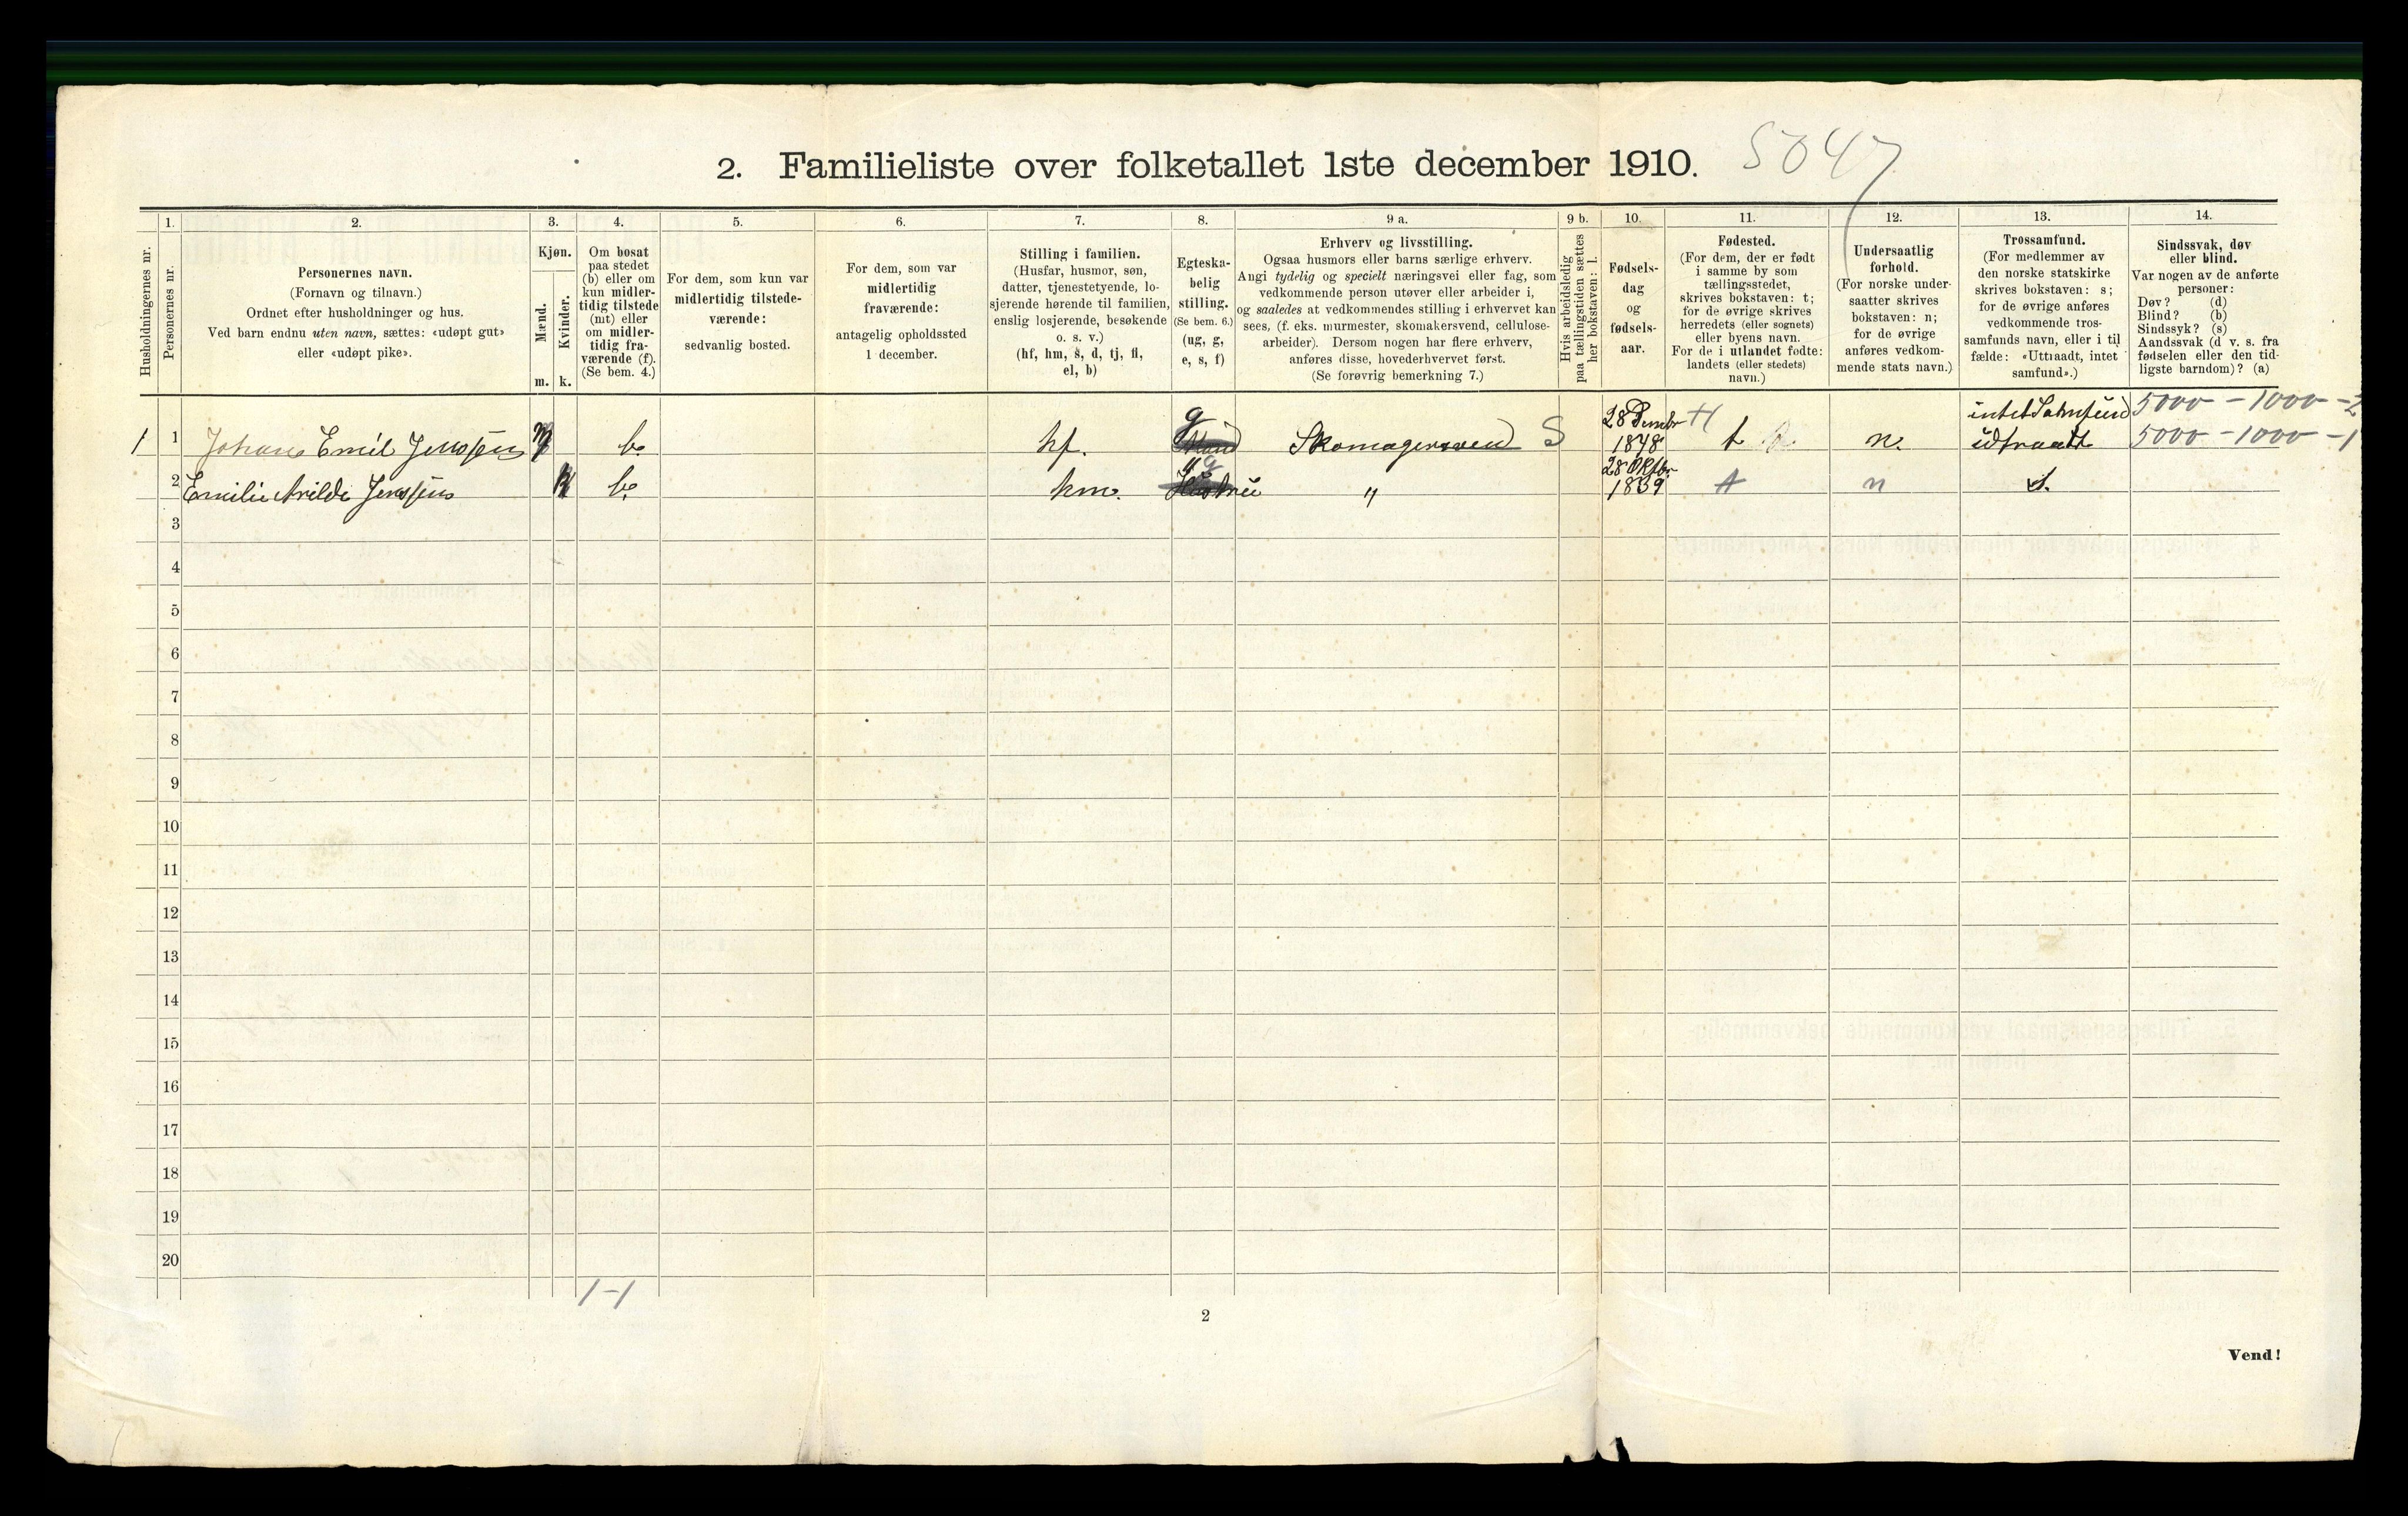 2. Familieliste over folketallet 1ste december 1910. 5047
Husholdningernes nr.
1.
Personernes nr.
2.
Personernes navn.
(Fornavn og tilnavn.)
Ordnet efter husholdninger og hus.
Ved barn endnu uten navn, sættes: «udøpt gut»
eller «udøpt pike».
3.
Kjøn.
Mænd.
Kvinder.
m. k.
4.
Om bosat
paa stedet
(b) eller om
kun midler-
tidig tilstede
(mt) eller
om midler-
tidig fra-
værende (f).
(Se bem. 4.)
5.
For dem, som kun var
midlertidig tilstede-
værende:
sedvanlig bosted.
6.
For dem, som var
midlertidig
fraværende:
antagelig opholdssted
1 december.
7.
Stilling i familien.
(Husfar, husmor, søn,
datter, tjenestetyende, lo-
sjerende hørende til familien,
enslig losjerende, besøkende
o. s. v.)
(hf, hm, s, d, tj, fl,
el, b)
8.
Egteska-
belig
stilling.
(Se bem. 6.)
(ug, g,
e, s, f)
9 a.
Erhverv og livsstilling.
Ogsaa husmors eller barns særlige erhverv.
Angi tydelig og specielt næringsvei eller fag, som
vedkommende person utøver eller arbeider i,
og saaledes at vedkommendes stilling i erhvervet kan
sees, (f. eks. murmester, skomakersvend, cellulose-
arbeider). Dersom nogen har flere erhverv,
anføres disse, hovederhvervet først.
(Se forøvrig bemerkning 7.)
9 b.
Hvis arbeidsledig
paa tællingstiden sættes
her bokstaven: l.
10.
Fødsels-
dag
og
fødsels-
aar.
11.
Fødested.
(For dem, der er født
i samme by som
tællingsstedet,
skrives bokstaven: t;
for de øvrige skrives
herredets (eller sognets)
eller byens navn.
For de i utlandet fødte:
landets (eller stedets)
navn.)
12.
Undersaatlig
forhold.
(For norske under-
saatter skrives
bokstaven: n;
for de øvrige
anføres vedkom-
mende stats navn.)
13.
Trossamfund.
(For medlemmer av
den norske statskirke
skrives bokstaven: s;
for de øvrige anføres
vedkommende tros-
samfunds navn, eller i til-
fælde: «Uttraadt, intet
samfund».)
14.
Sindssvak, døv
eller blind.
Var nogen av de anførte
personer:
Døv? (d)
Blind? (b)
Sindssyk? (s)
Aandssvak (d v. s. fra
fødselen eller den tid-
ligste barndom)? (a)
1 1 Johan Emil Jenssen m b. hf. g Skomagersvend S 1848 t n. udtraadt
5000 - 1000 - 2
5000 - 1000 - 1
2 Emilie Arilde Jenssen k b. hm. g Hustru " 28 Oktbr 1839 t n s.
3
4
5
6
7
8
9
10
11
12
13
14
15
16
17
18
19
20
1-1
2
Vend!